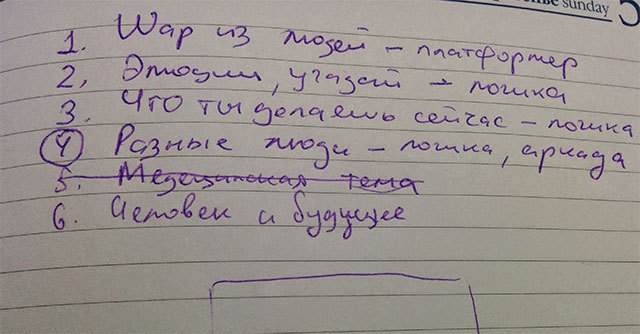 sunday
1. Шар из людей – платформер
2. Эмоции, угадай – логика
3. Что ты делаешь сейчас – логика
4 Разные люди – логика, аркада
5. Медецинская тема
6. Человек и будущее